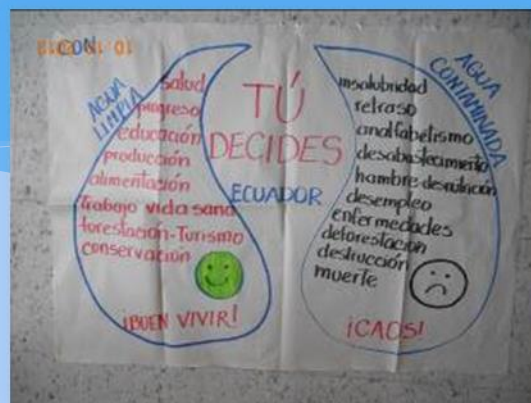 CON
AGUA
LIMPIA
salud
progreso
educación
producción
alimentación
trabajo vida sana
forestación-Turismo
conservación
¡BUEN VIVIR!
TÚ
DECIDES
ECUADOR
AGUA
CONTAMINADA
insalubridad
retraso
analfabetismo
desabastecimiento
hambre desnutrición
desempleo
enfermedades
deforestación
destrucción
muerte
¡CAOS!